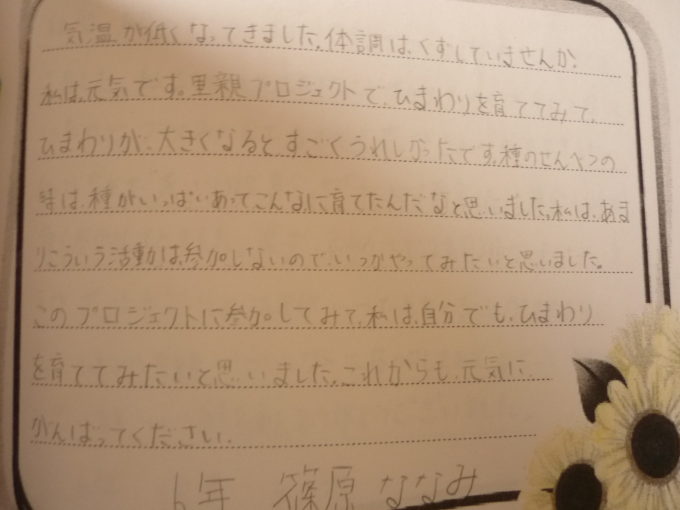 気温が低くなってきました。体調は、くずしていませんか？
私は、元気です。里親プロジェクトで、ひまわりを育ててみて、
ひまわりが、大きくなるとすごくうれしかったです。種のせんべつの
時は、種がいっぱいあってこんなに育てたんだなと思いました。私は、あま
りこういう活動は参加しないので、いつかやってみたいと思いました。
このプロジェクトに参加してみて、私は、自分でも、ひまわり
を育ててみたいと思いました。これからも、元気に、
がんばってください。
6年 篠原 ななみ